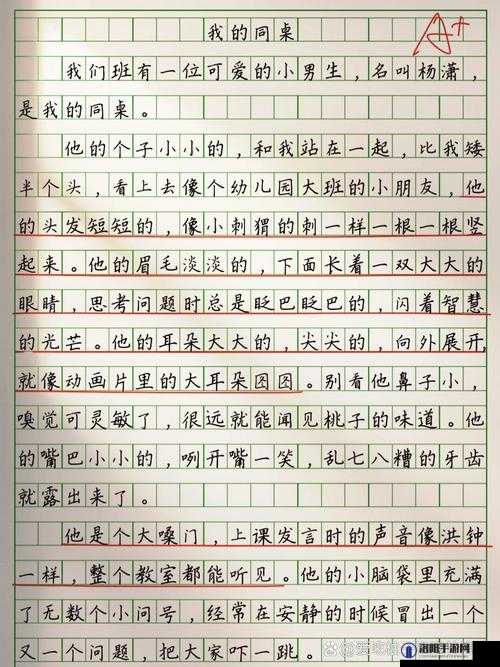 我的同桌
A+
我们班有一位可爱的小男生，名叫杨潇，
是我的同桌。
他的个子小小的，和我站在一起，比我矮
半个头，看上去像个幼儿园大班的小朋友，他
的头发短短的，像小刺猬的刺一样一根一根竖
起来。他的眉毛淡淡的，下面长着一双大大的
眼睛，思考问题时总是眨巴眨巴的，闪着智慧
的光芒。他的耳朵大大的，尖尖的，向外展开，
就像动画片里的大耳朵图图。别看他鼻子小，
嗅觉可灵敏了，很远就能闻见桃子的味道。他
的嘴巴小小的，咧开嘴一笑，乱七八糟的牙齿
就露出来了。
他是个大嗓门，上课发言时的声音像洪钟
一样，整个教室都能听见。他的小脑袋里充满
了无数个小问号，经常在安静的时候冒出一个
又一个问题，把大家吓一跳。
洛阳手游网